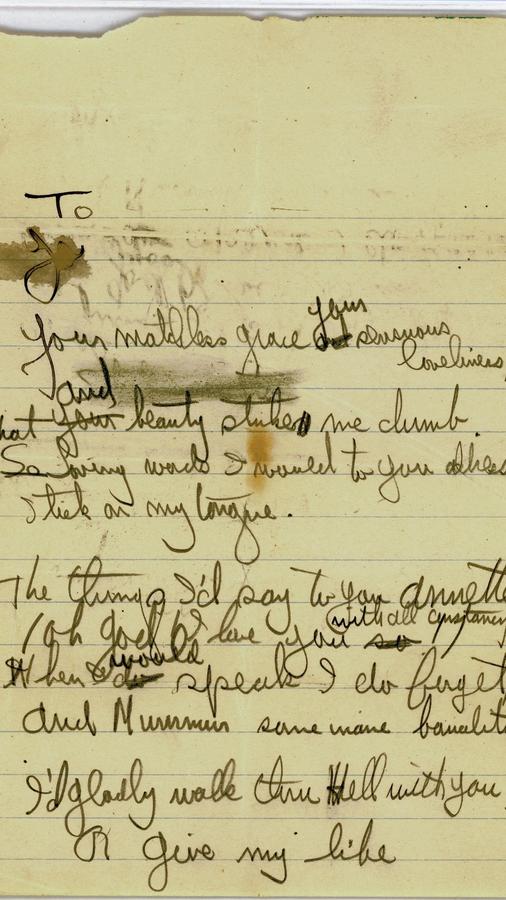 To
Your matchless grace your sensuous
loveliness,
and
hat your beauty strikes me dumb.
So loving words I would to you
stick on my tongue.
The things I'd say to you annette
(oh god I love you so with all constancy)
When I do would speak I do forget
and Murmur some inane banalit
I'd gladly walk thru Hell with you
Or give my life